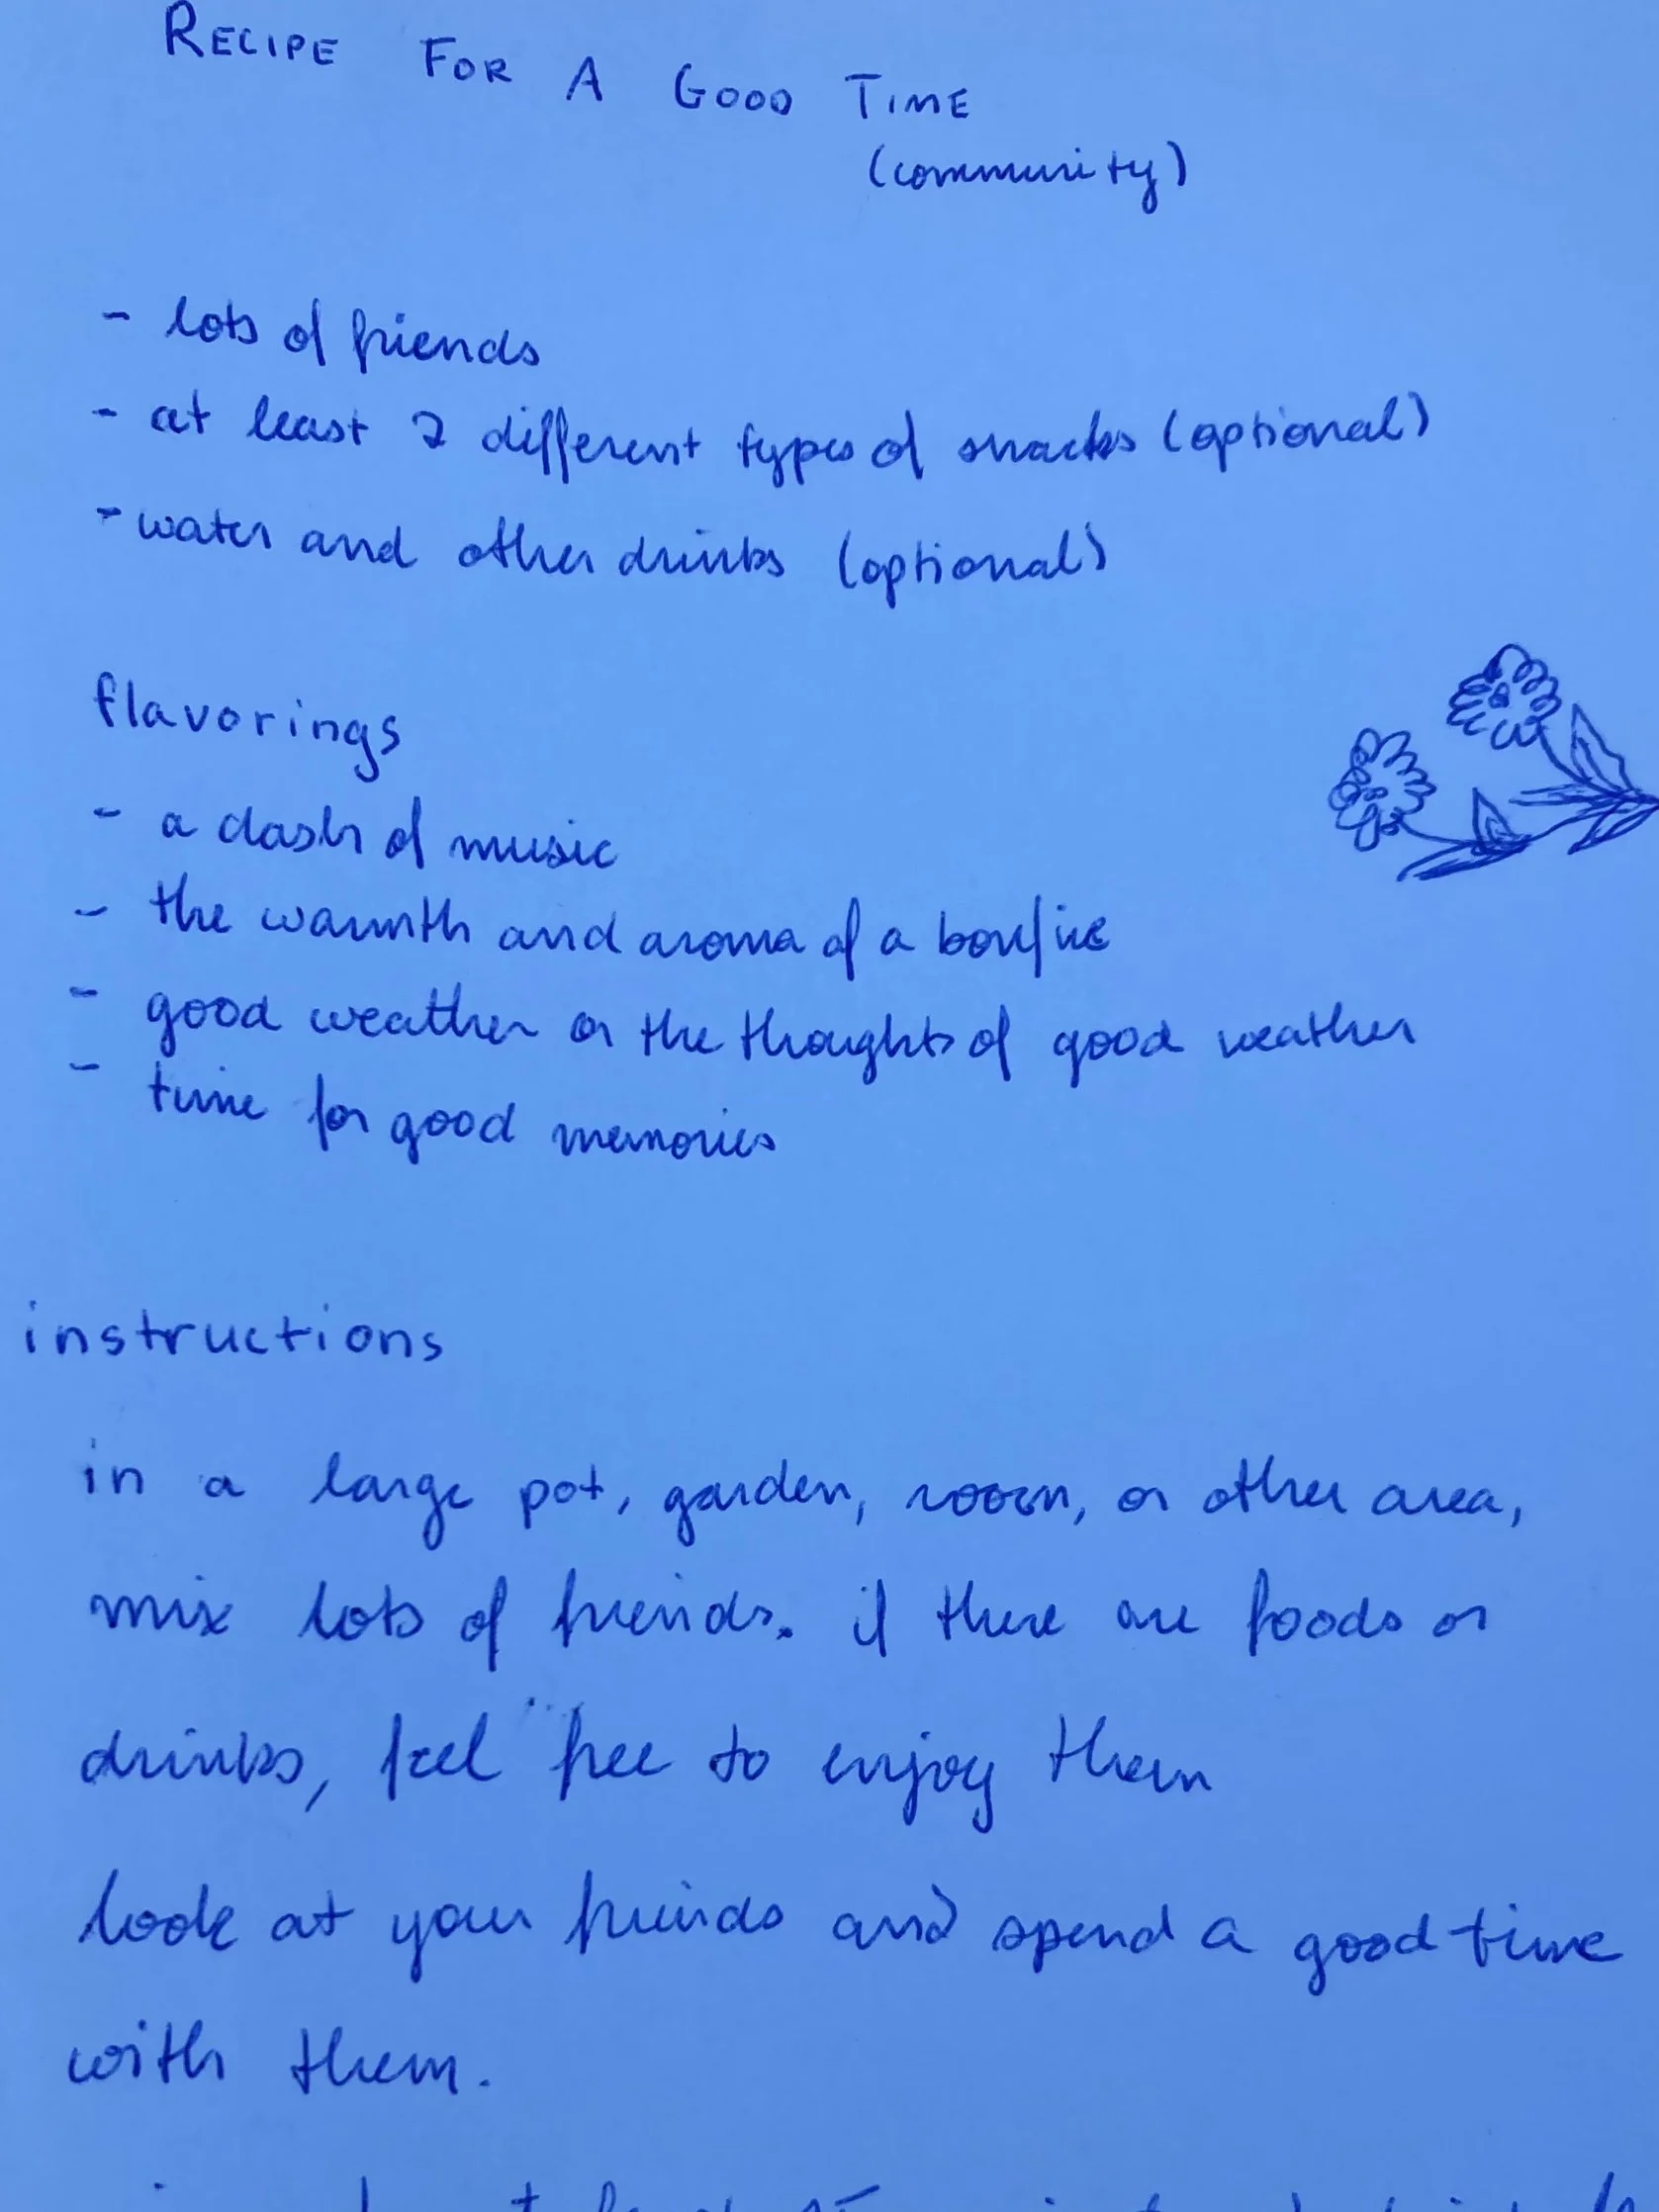 RECIPE FOR A GOOD TIME
(community)
- lots of friends
- at least 2 different types of snacks (optional)
- water and other drinks (optional)
flavorings
- a dash of music
- the warmth and aroma of a bonfire
- good weather or the thoughts of good weather
- time for good memories
instructions
in a large pot, garden, room, or other area,
mix lots of friends. if there are foods or
drinks, feel free to enjoy them
look at your friends and spend a good time
with them.